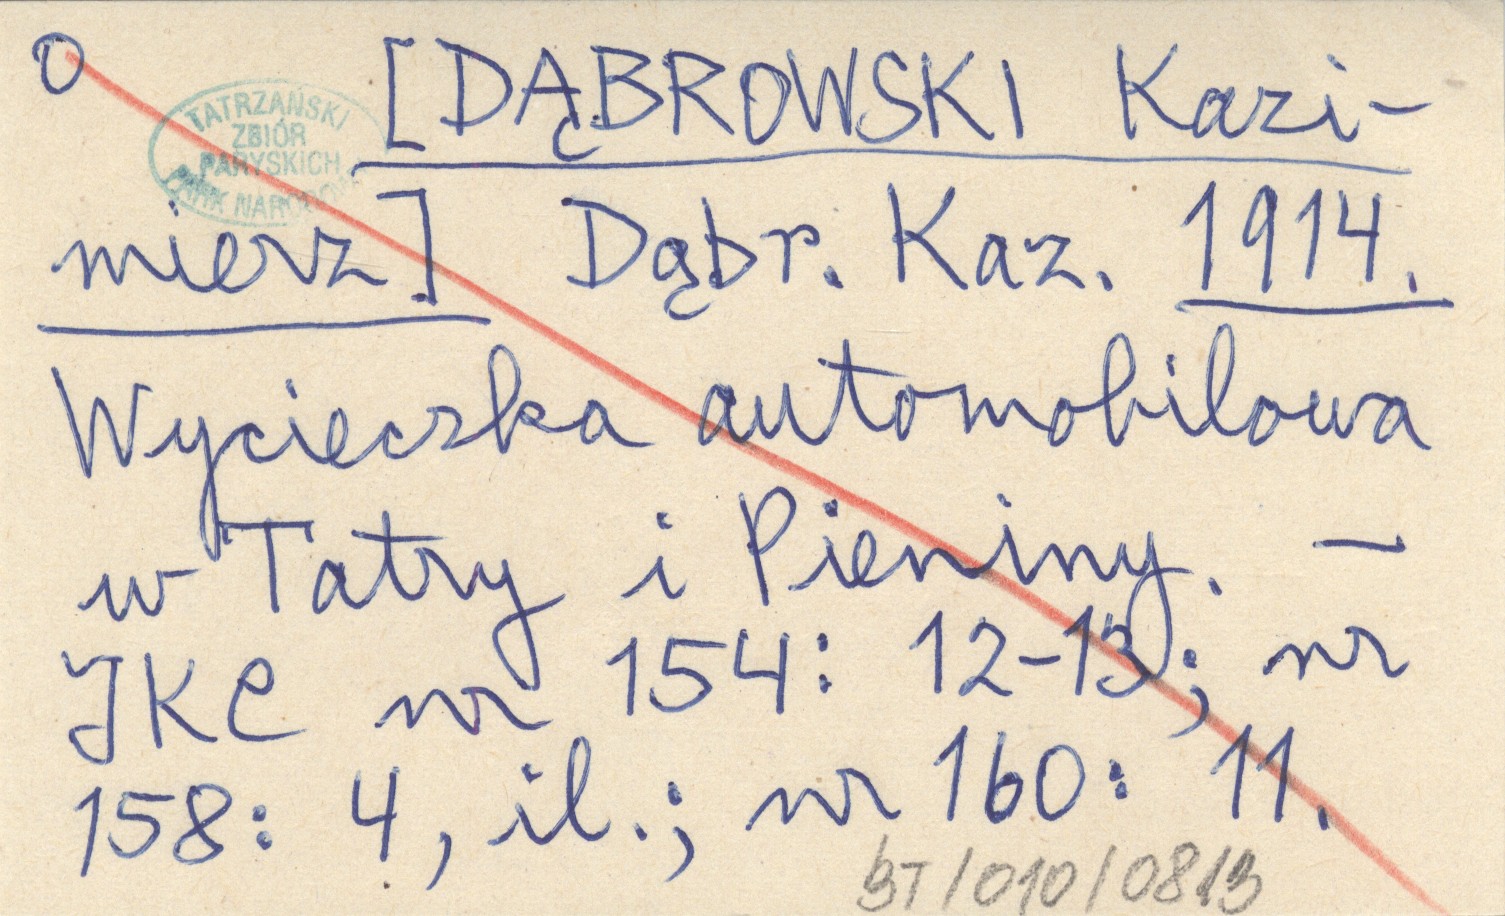 O [DĄBROWSKI Kazi-
TATRZAŃSKI
ZBIÓR
PARYSKICH
PARK NARODOWY
mierz] Dąbr. Kaz. 1914.
Wycieczka automobilowa
w Tatry i Pieniny. —
JKC nr 154: 12-13; nr
158: 4, il.; nr 160: 11.
BT/010/0813